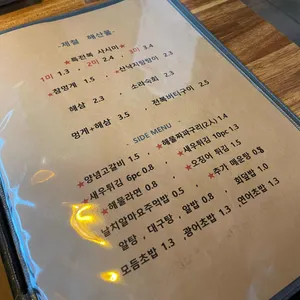 ·제철 해산물·
★특전복 사시미★
1미 1.3 , 2미 2.4 , 3미 3.4
★참멍게 1.5 , ★산낙지탕탕이 2.4
해삼 2.3 , 소라숙회 2.3
멍게+해삼 3.5 , 전복버터구이 2.5
SIDE MENU
양념고갈비 1.5 , ★해물짜파구리(2人) 1.4
★새우튀김 6pc 0.8 , ★새우튀김 10pc 1.3
★해물라면 0.8 , ★오징어 튀김 1.5
날치알마요주먹밥 0.5 , ★추가 매운탕 0.5
알탕 , 대구탕 , 알밥 0.8 , 회덮밥 1.0
모듬초밥 1.3 , 광어초밥 1.3 , 연어초밥 1.3